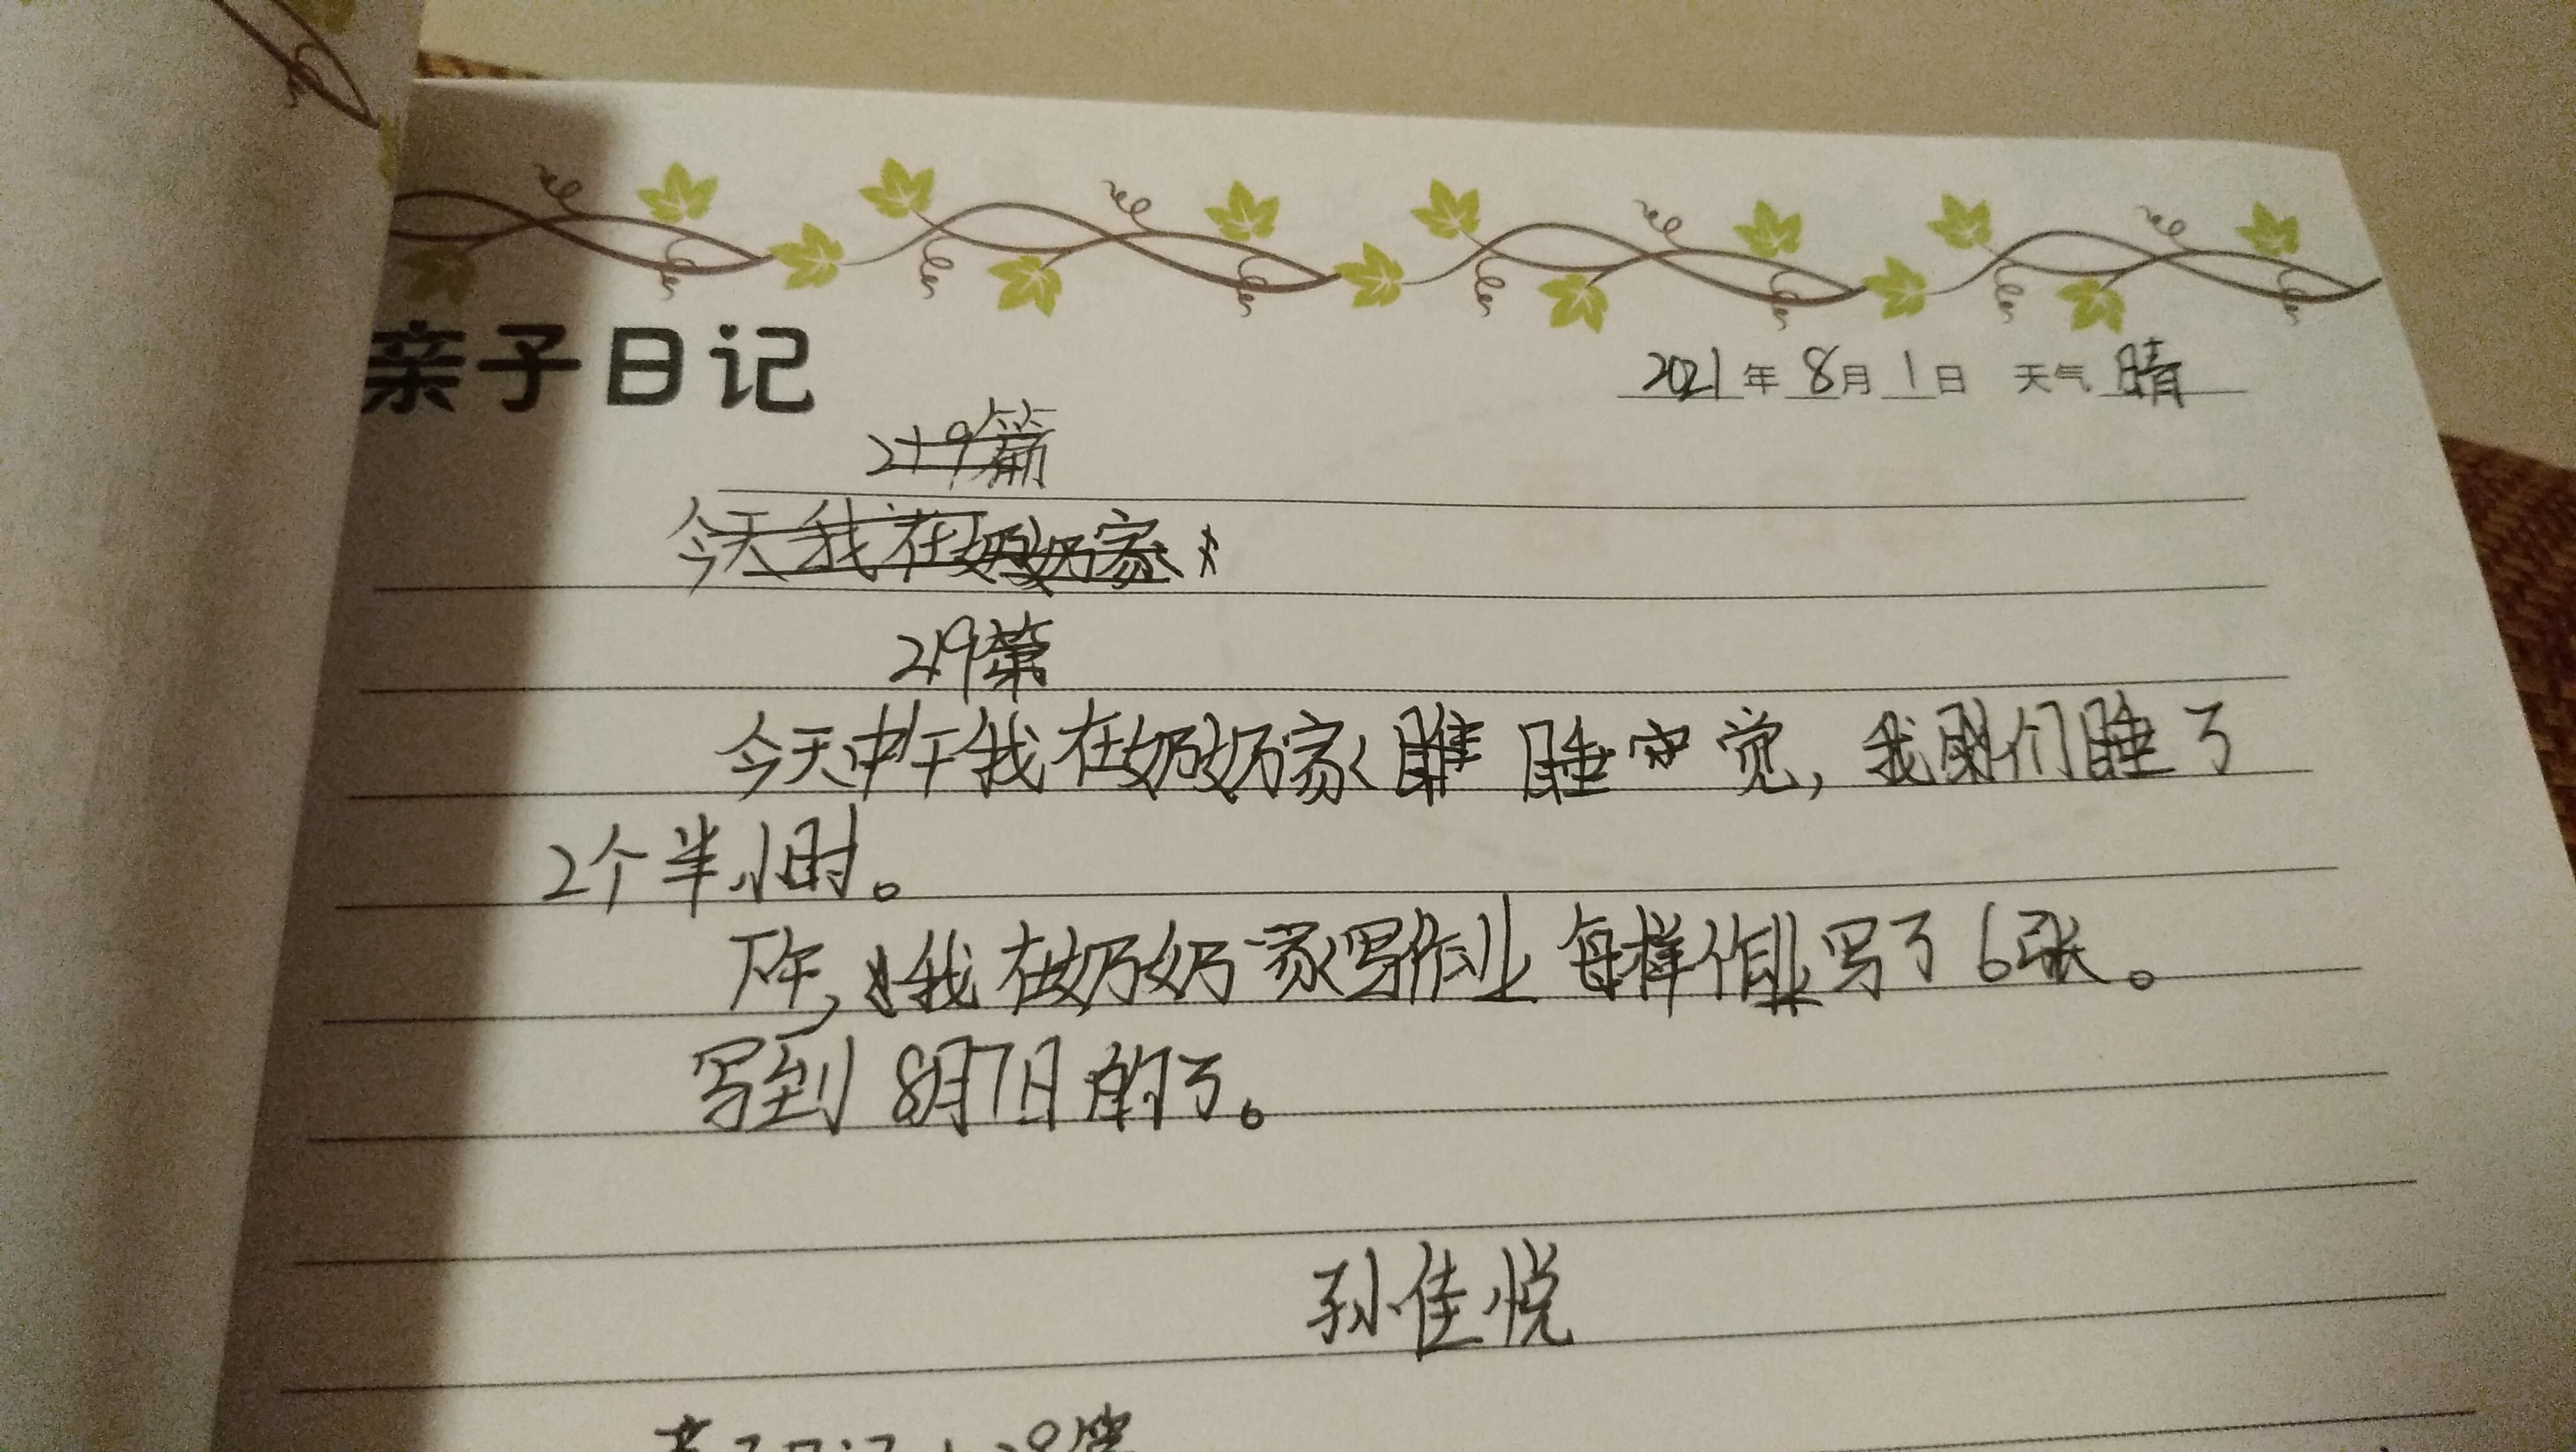 亲子日记
2021年8月1日 天气 晴
219篇
今天我在奶奶家
219篇
今天中午我在奶奶家睡午觉，我们睡了
2个半小时。
下午，我在奶奶家写作业每样作业写了6张。
写到8月7日的了。
孙佳悦